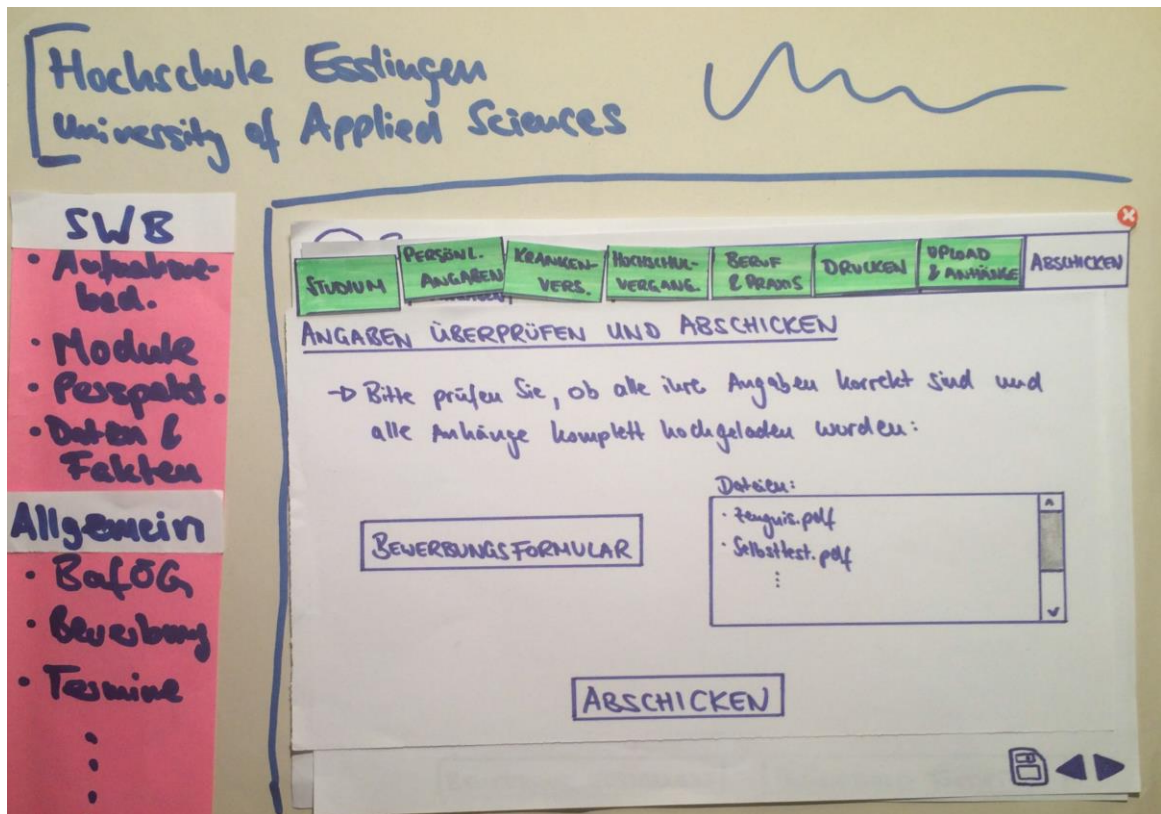 Hochschule Esslingen
University of Applied Sciences
SWB
• Aufnahme-
bed.
• Module
• Perspekt.
• Daten &
Fakten
Allgemein
• BafÖG
• Bewerbung
• Termine
STUDIUM
PERSÖNL.
ANGABEN
KRANKEN-
VERS.
HOCHSCHUL-
VERGANG.
BERUF
& PRAXIS
DRUCKEN
UPLOAD
& ANHÄNGE
ABSCHICKEN
ANGABEN ÜBERPRÜFEN UND ABSCHICKEN
→ Bitte prüfen Sie, ob alle ihre Angaben korrekt sind und
alle Anhänge komplett hochgeladen wurden:
BEWERBUNGSFORMULAR
Dateien:
· Zeugnis.pdf
· Selbsttest.pdf
ABSCHICKEN